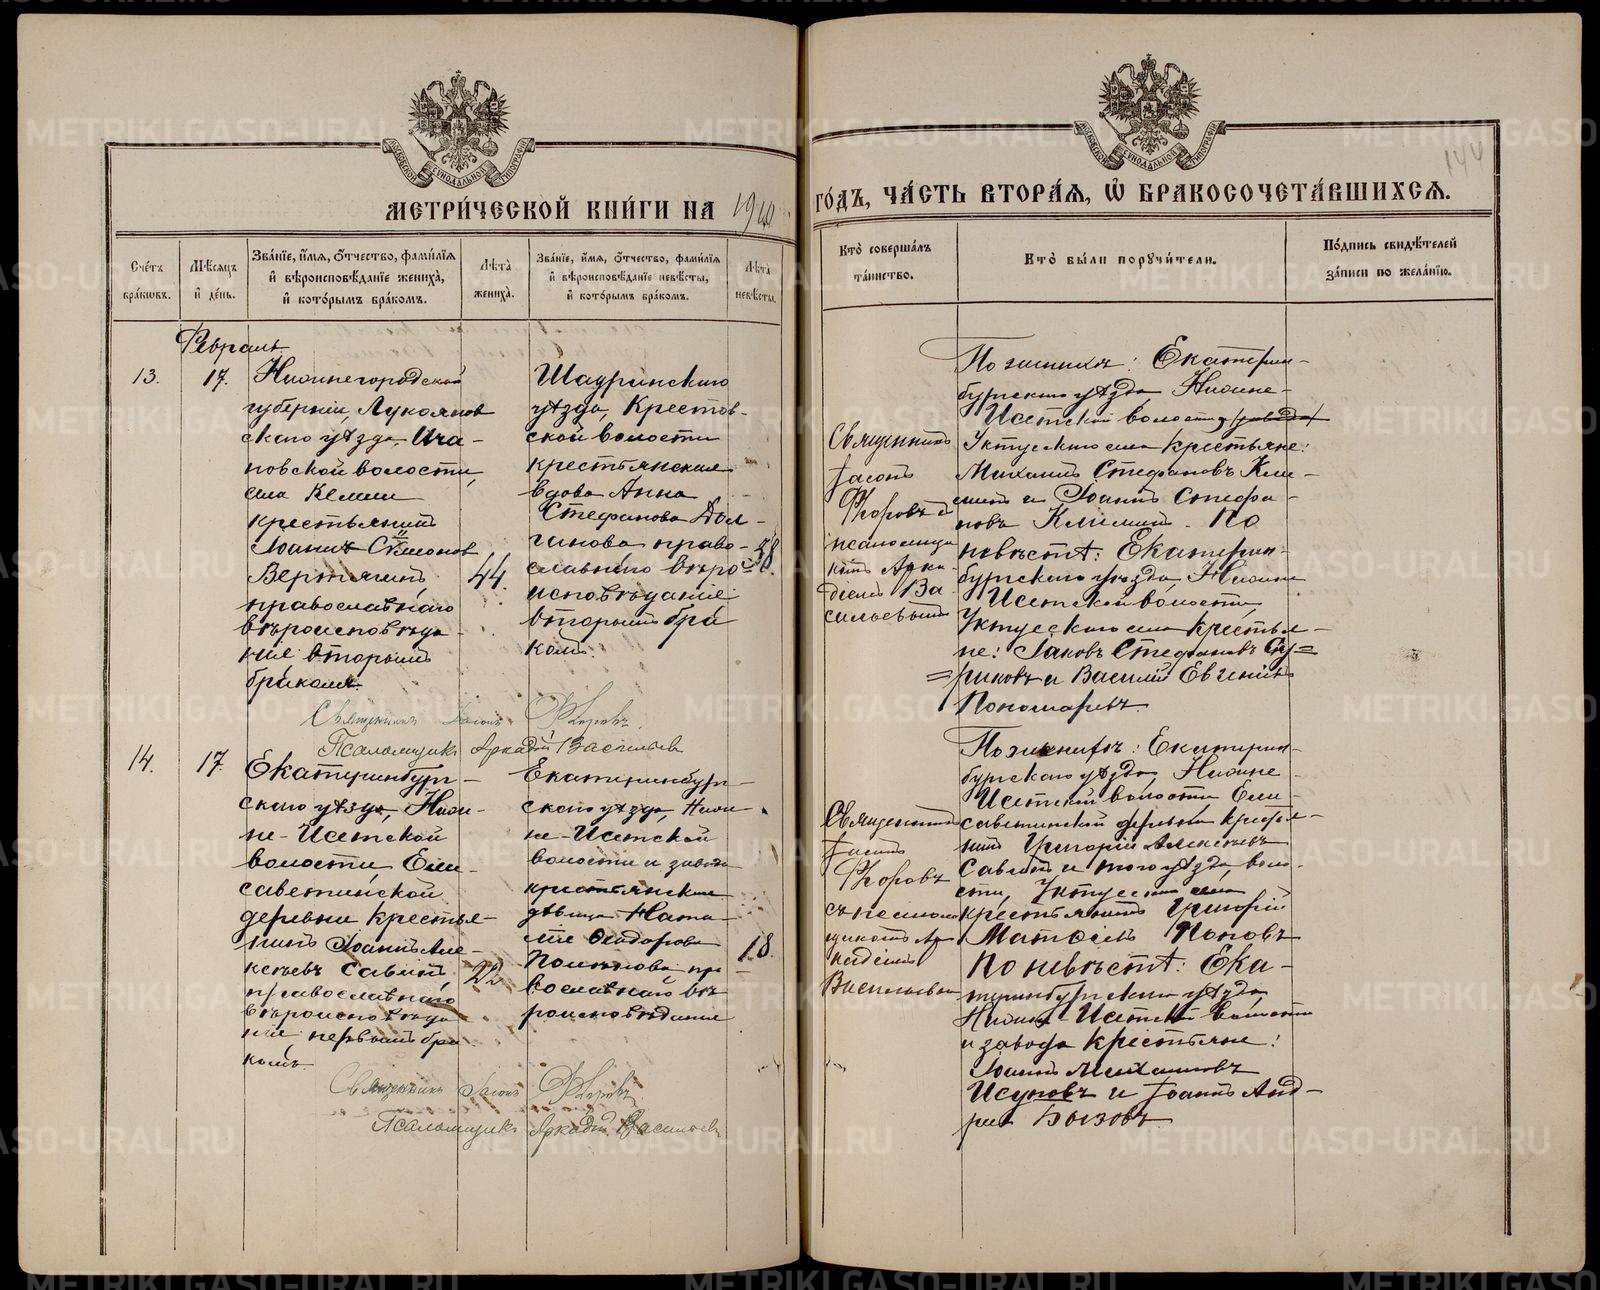 МЕТРИ́ЧЕСКОЙ КНИ́ГИ НА 1910
ГО́ДЪ, ЧА́СТЬ ВТОРА́Я, Ѽ БРАКОСОЧЕТА́ВШИХСЯ.
144
МОСКОВСКОЙ СѴНОДАЛЬНОЙ ТИПОГРАФІИ
МОСКОВСКОЙ СѴНОДАЛЬНОЙ ТИПОГРАФІИ
Сче́тъ бра́кѡвъ.
Мѣ́сяцъ и҆ де́нь.
Зва́нїе, и҆́мя, ѻ҆́тчество, фами́лїя и҆ вѣроисповѣ́данїе жениха̀, и҆ кото́рымъ бра́комъ.
Лѣ́та жениха̀.
Зва́нїе, и҆́мя, ѻ҆́тчество, фами́лїя и҆ вѣроисповѣ́данїе невѣ́сты, и҆ кото́рымъ бра́комъ.
Лѣ́та невѣ́сты.
Кто̀ соверша́лъ та́инство.
Кто̀ бы́ли порꙋчи́тели.
По́дпись свидѣ́телей за́писи по жела́нїю.
Февраль
13.
17.
Нижнегородской
губерніи, Лукоянов
скаго уѣзда, Ича-
ловской волости,
села Кемли
крестьянинъ
Іоаннъ Сѵмеонов
Вертягинъ,
православнаго
вѣроисповѣда-
нія вторымъ
бракомъ.
44.
Шадринскаго
уѣзда, Крестов-
ской волости
крестьянская
вдова Анна
Стефанова Дол-
ганова право-
славнаго вѣро-
исповѣданія
вторымъ бра
комъ.
38.
Священникъ
Іасонъ
Флоровъ съ
псаломщи
комъ Арка-
діемъ Ва
сильевымъ
По женихѣ: Екатерин-
бургскаго уѣзда Нижне-
Исетской волости, (завода)
Уктусскаго села крестьяне:
Михаилъ Стефановъ Кли-
минъ и Іоаннъ Стефа-
новъ Климинъ. По
невѣстѣ: Екатерин-
бургскаго уѣзда, Нижне
Исетской волости,
Уктусскаго села крестья-
не: Іаковъ Стефановъ Су=
=риковъ и Василій Евгеніевъ
Пономаревъ.
Священникъ Іасонъ Флоровъ.
Псаломщикъ Аркадій Васильевъ
14.
17.
Екатеринбург-
скаго уѣзда, Ниж-
не-Исетской
волости, Ели-
саветинской
деревни крестья-
нинъ Іоаннъ Але-
ксѣевъ Савинъ,
православнаго
вѣроисповѣда
нія, первымъ бра
комъ.
22
Екатеринбург-
скаго уѣзда, Ниж
не-Исетской
волости и завода
крестьянская
дѣвица Ната-
лія Ѳеодорова
пра
вославнаго вѣ
роисповѣданія
18.
Священникъ
Іасонъ
Флоровъ
съ псалом
щикомъ Ар
кадіемъ
Васильевым
По женихѣ: Екатерин-
бургскаго уѣзда, Нижне
Исетской волости Ели-
саветинской деревни крестья-
нинъ Григорій Алексѣевъ
Савинъ и того уѣзда, воло-
сти, Уктусскаго села
крестьянинъ Григорій
Матѳіевъ Поповъ
По невѣстѣ: Ека-
теринбургскаго уѣзда,
Нижне-Исетской волости
и завода крестьяне:
Іоаннъ Михаиловъ
Исуповъ и Іоаннъ Анд-
реевъ Бызовъ
Священникъ Іасонъ Флоровъ.
Псаломщикъ Аркадій Васильевъ
METRIKI.GASO-URAL.RU